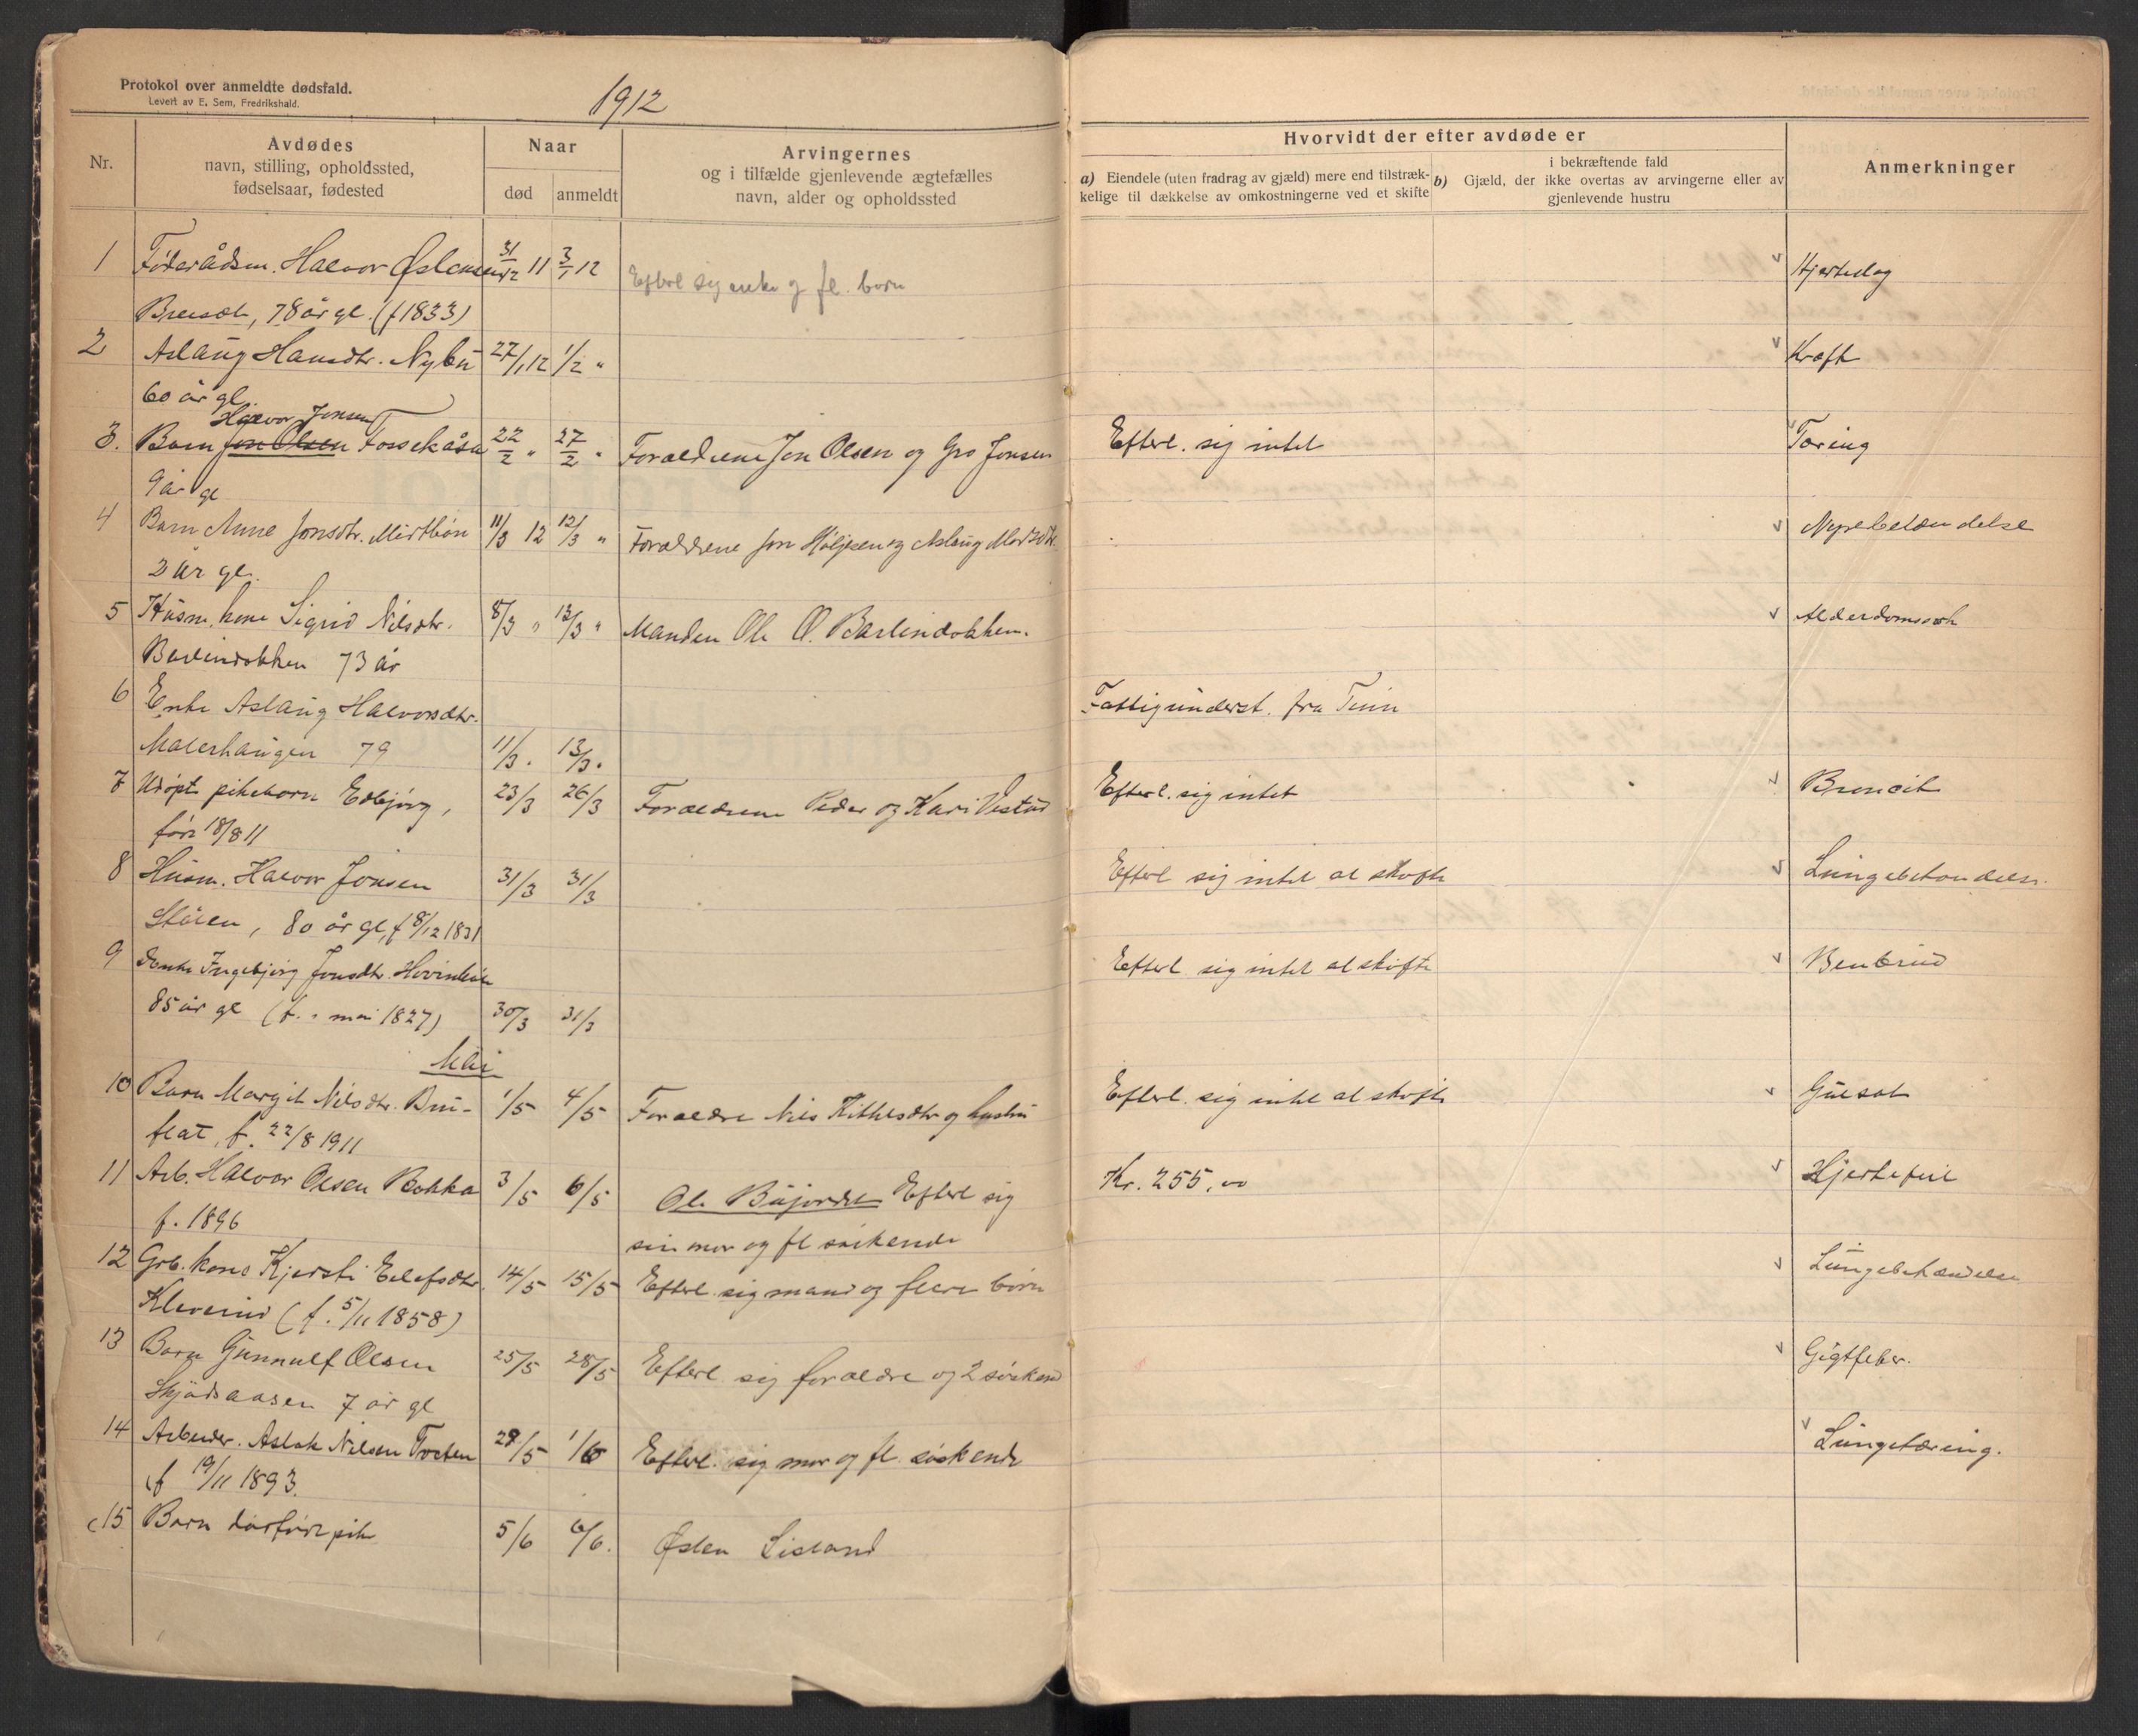 Protokol over anmeldte dødsfald.
Levert av E. Sem, Fredrikshald.
1912
Nr.
Avdødes
navn, stilling, opholdssted,
fødselsaar, fødested
Naar
død
anmeldt
Arvingernes
og i tilfælde gjenlevende ægtefælles
navn, alder og opholdssted
Hvorvidt der efter avdøde er
a) Eiendele (uten fradrag av gjæld) mere end tilstræk-
kelige til dækkelse av omkostningerne ved et skifte
b)
i bekræftende fald
Gjæld, der ikke overtas av arvingerne eller av
gjenlevende hustru
Anmerkninger
1 Føderådsm. Halvor Østensen 31/12 11 3/1 12 Efterl sig enke og fl. børn Hjerteslag
78 år gl. (f 1833)
2 Aslaug Hansdtr. Nybu 27/1 12 1/2 " Kræft
60 år gl.
Halvor Jonsen
3. Barn Jon Olsen Fossekåsa 22/2 " 27/2 " Forældrene Jon Olsen og Gro Jonsen Efterl. sig intet Tæring
9 år gl
4 Barn Anne Jonsdtr. 11/3 12 12/3 " Forældrene Jon Høljesen og Aslaug Madsdtr. Nyrebetændelse
2 år gl.
5 Husm. kone Sigrid Nilsdtr. 8/3 " 13/3 " Manden Ole O. Barlindokken. Alderdomssvk
Barlindokken 73 år
6 Enke Aslaug Halvorsdtr. Fattigunderst. fra Tinn
Malerhaugen 79 11/3 . 13/3 .
7 Udøpt pikebarn Edbjørg, 23/3 26/3 Forældrene Peder og Kari Efterl. sig intet Broncit
født 18/8 11
8 Husm. Halvor Jonsen 31/3 31/3 Efterl sig intet at skifte Lungebetændelse.
Støien, 80 år gl, f 8/12 1831
9 Enke Ingebjørg Jonsdtr. Efterl sig intet at skifte Benbrud
85 år gl (f. " mai 1827) 30/3 31/3
Mai
10 Barn Margit Nilsdtr. Bru- 1/5 4/5 Forældre Nils Kittilsdtr og hustru Efterl. sig intet at skifte Gulsot
flat, f. 22/8 1911
11 Arb. Halvor Olsen Bakka 3/5 6/5 Ole Bøjordet Efterl sig Kr. 255,00 Hjertefeil
f. 1896 sin mor og fl søskende
12 Grb. kone Kjersti Eilefsdtr. 14/5 15/5 Efterl. sig mand og flere børn Lungebetændelse
Kleverud (f. 5/11 1858)
13 Barn Gunnulf Olsen 25/5 28/5 Efterl. sig forældre og 2 søskend Gigtfeber.
Skjødsaasen 7 år gl
14 Arbeider. Aslak Nilsen Traaen 28/5 1/6 Efterl. sig mor og fl. søskende Lungetæring.
f 19/11 1893.
15 Barn dødfødt pike 5/6 6/6. Østen Sisland